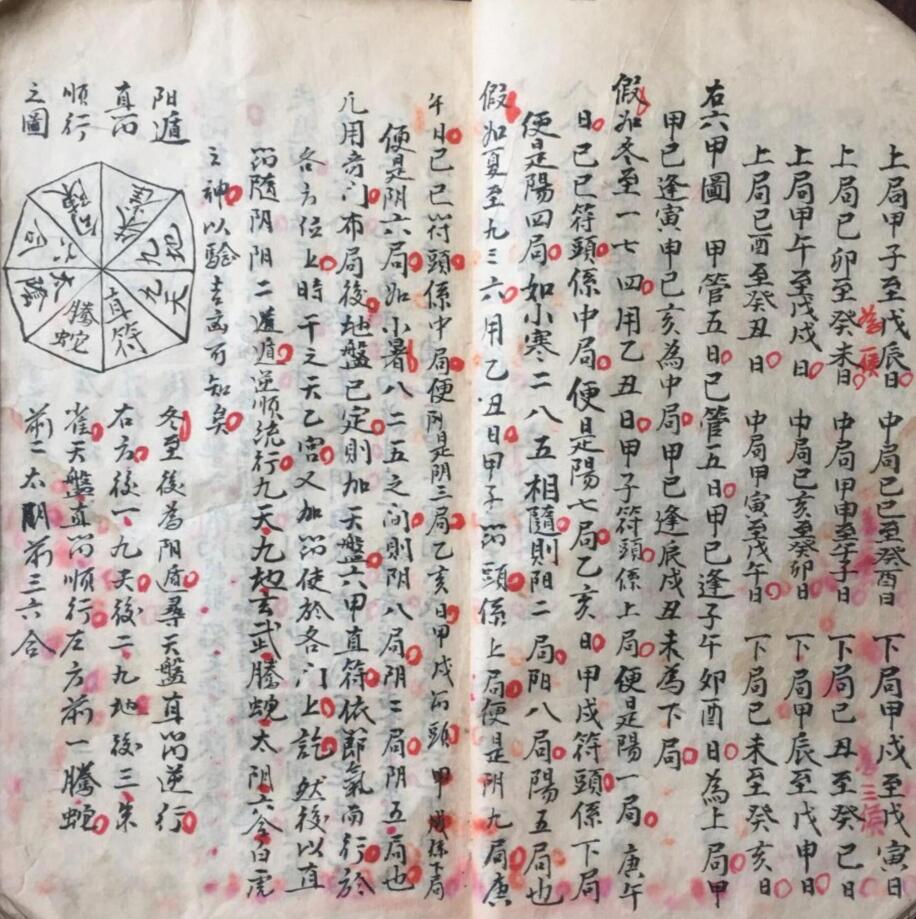 上局甲子至戊辰日 中局己巳至癸酉日 下局甲戌至戊寅日
上局己卯至癸未日 中局甲申至戊子日 下局己丑至癸巳日
上局甲午至戊戌日 中局己亥至癸卯日 下局甲辰至戊申日
上局己酉至癸丑日 中局甲寅至戊午日 下局己未至癸亥日
右六甲圖 甲管五日己管五日甲己逢子午卯酉日為上局甲
甲己逢寅申己亥為中局甲己逢辰戌丑未為下局
假如冬至一七四用乙丑日甲子符頭係上局便是陽一局庚午
日己巳符頭係中局便是陽七局乙亥日甲戌符頭係下局
便是陽四局如小寒二八五相隨則阳二局阳八局陽五局也
假如夏至九三六用乙丑日甲子符頭係上局便是阴九局庚
午日己巳符頭係中局便是阴三局乙亥日甲戌符頭 甲戌係下局
便是阴六局如小暑八二五之间則阴八局阴二局阴五局也
凡用奇门布局後地盤已定則加天盤六甲直符依節氣而行於
各方位上時干之天乙宮又加符使於各门上訖然後以直
符随阴阳二遁逆順流行九天九地玄武騰蛇太阴六合白虎
之神以驗吉凶可知矣
阳遁
真符
順行
之圖
九地
九天
真符
騰蛇
太陰
六合
冬至後為阳遁尋天盤直符逆行
右方後一九天後二九地後三朱
雀天盤直符順行左方前一騰蛇
前二太阴前三六合